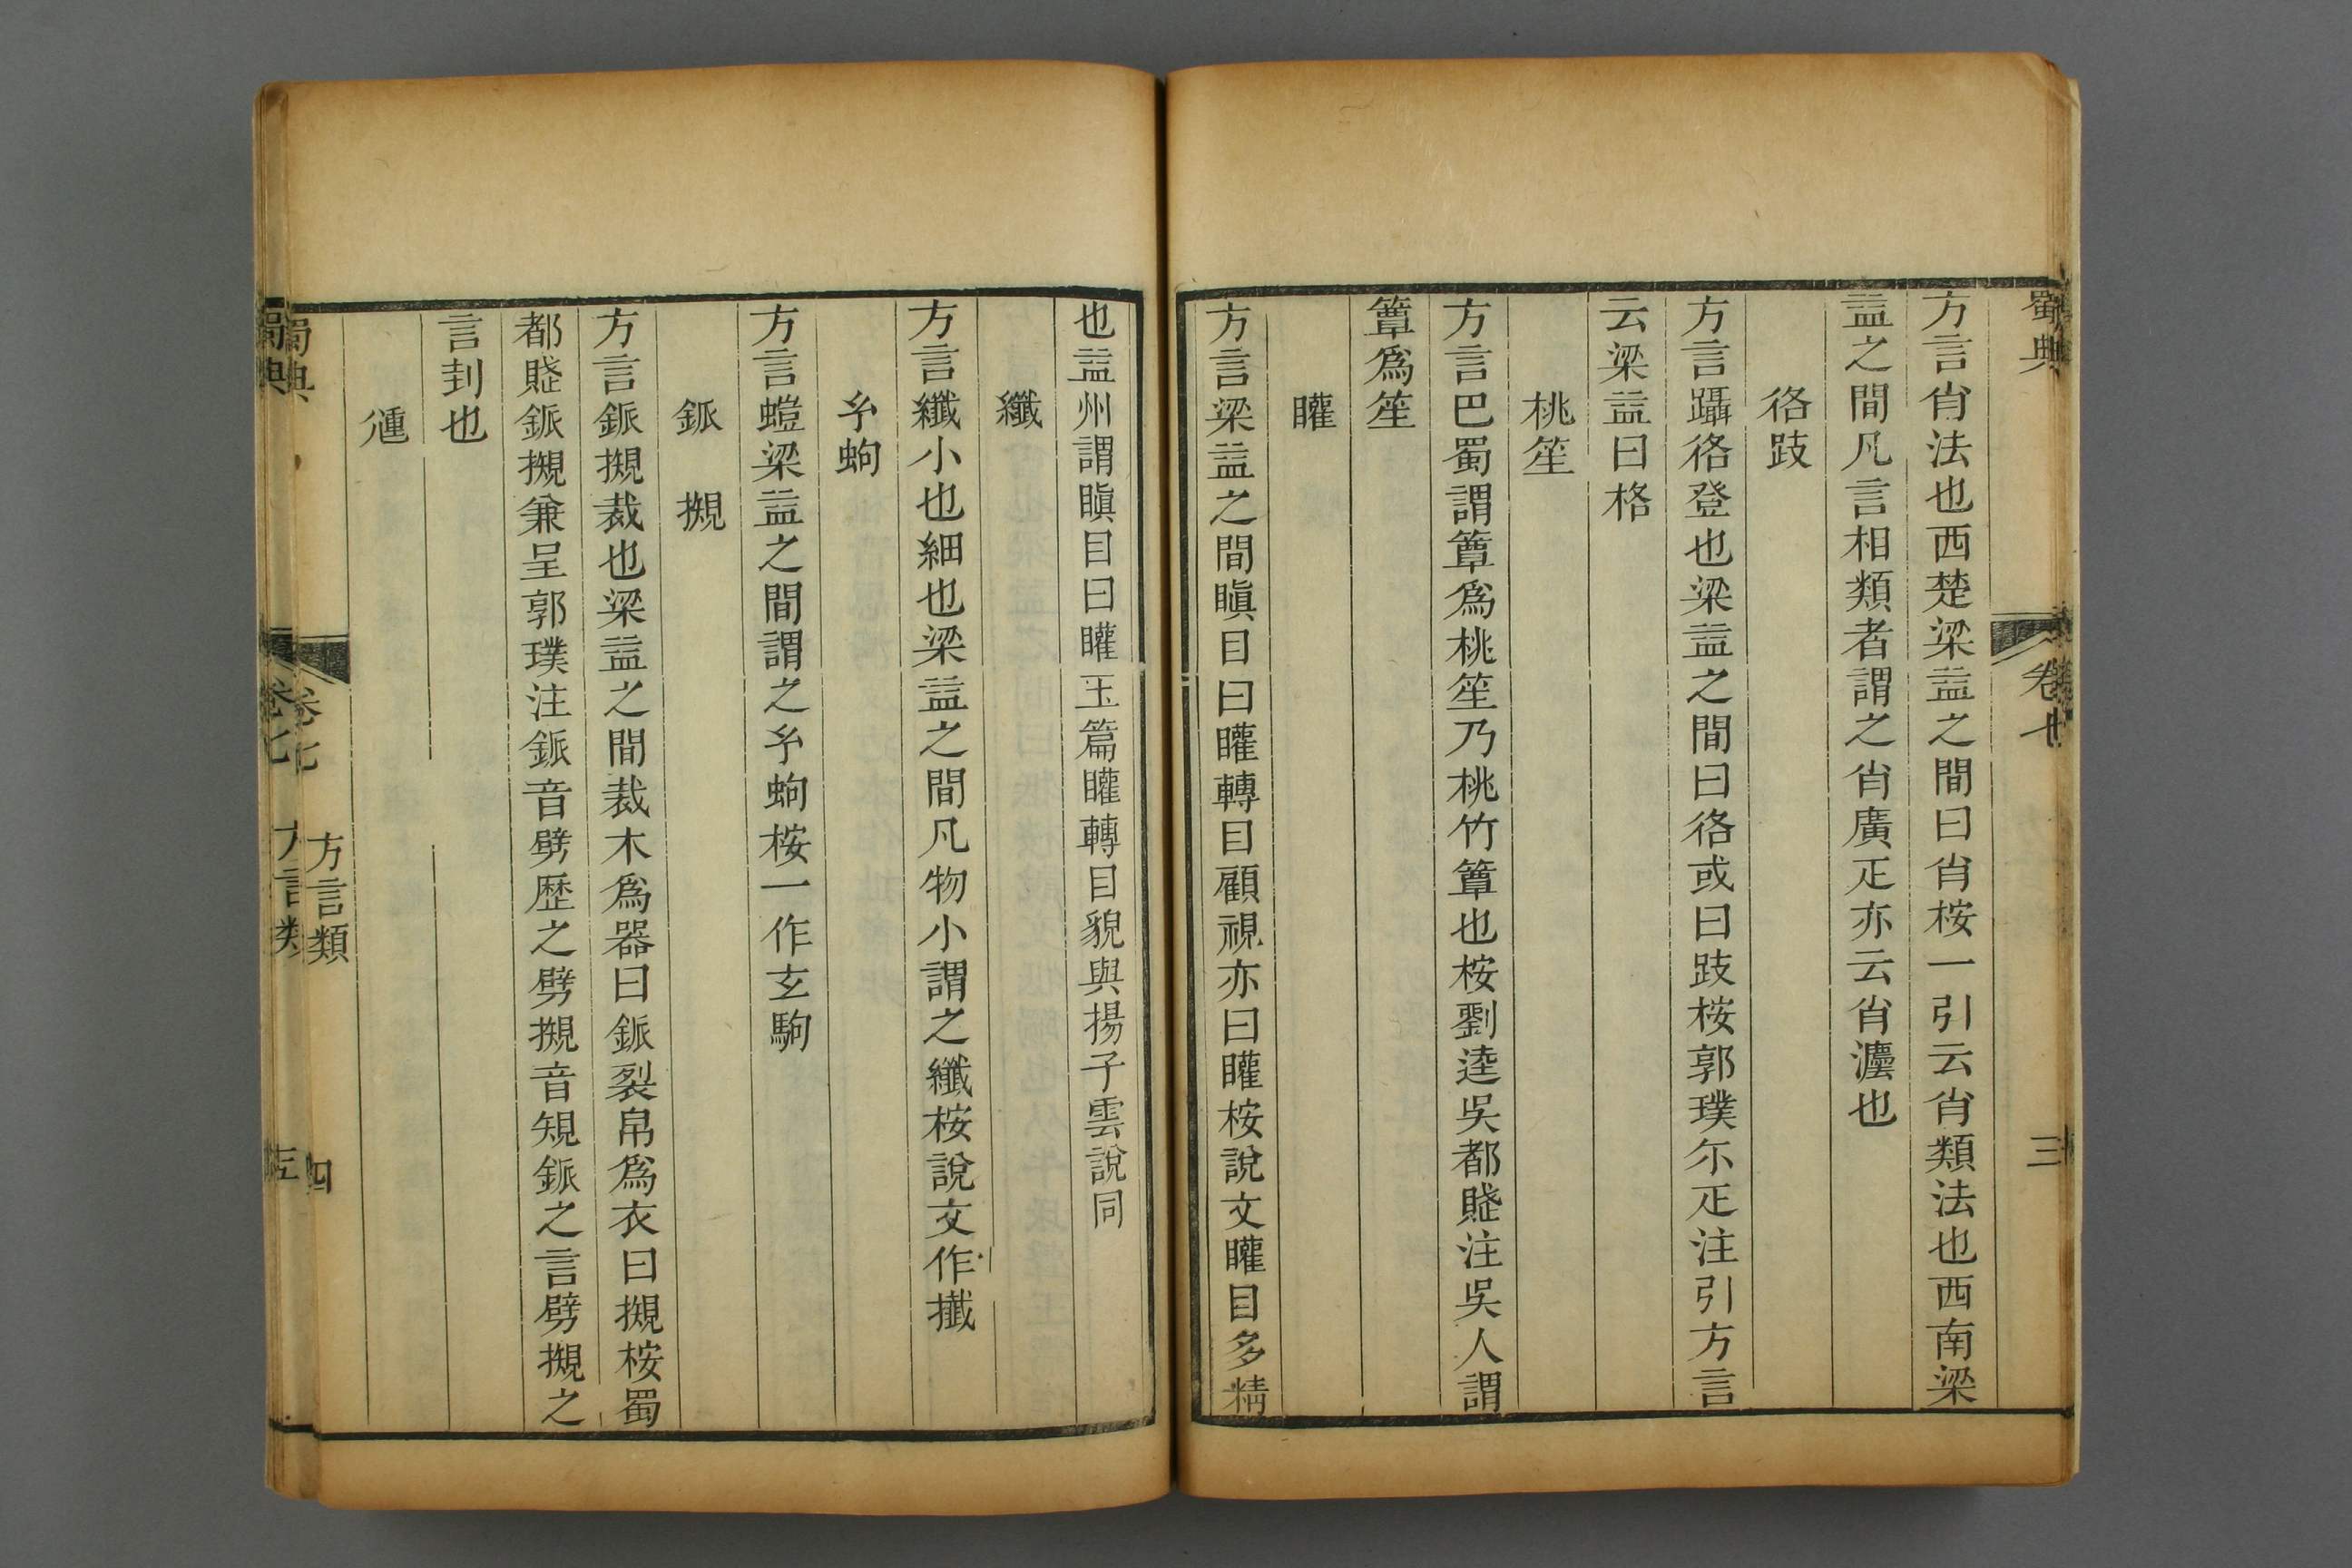 蜀典 卷七 三
方言肖法也西楚梁益之間曰肖桉一引云肖類法也西南梁
益之間凡言相類者謂之肖廣疋亦云肖灋也
𢓜跂
方言躡𢓜登也梁益之間曰𢓜或曰跂桉郭璞尒疋注引方言
云梁益曰格
桃笙
方言巴蜀謂簟爲桃笙乃桃竹簟也桉劉逵吳都賦注吳人謂
簟爲笙
矔
方言梁益之間瞋目曰矔轉目顧視亦曰矔桉說文矔目多精
也益州謂瞋目曰矔玉篇矔轉目貌與揚子雲說同
纖
方言纖小也細也梁益之間凡物小謂之纖桉說文作攕
幺蚼
方言螘梁益之間謂之幺蚼桉一作玄駒
鈲 摫
方言鈲摫裁也梁益之間裁木爲器曰鈲裂帛爲衣曰摫桉蜀
都賦鈲摫兼呈郭璞注鈲音劈歷之劈摫音規鈲之言劈摫之
言刲也
𢔏
蜀典 卷七 方言類 四